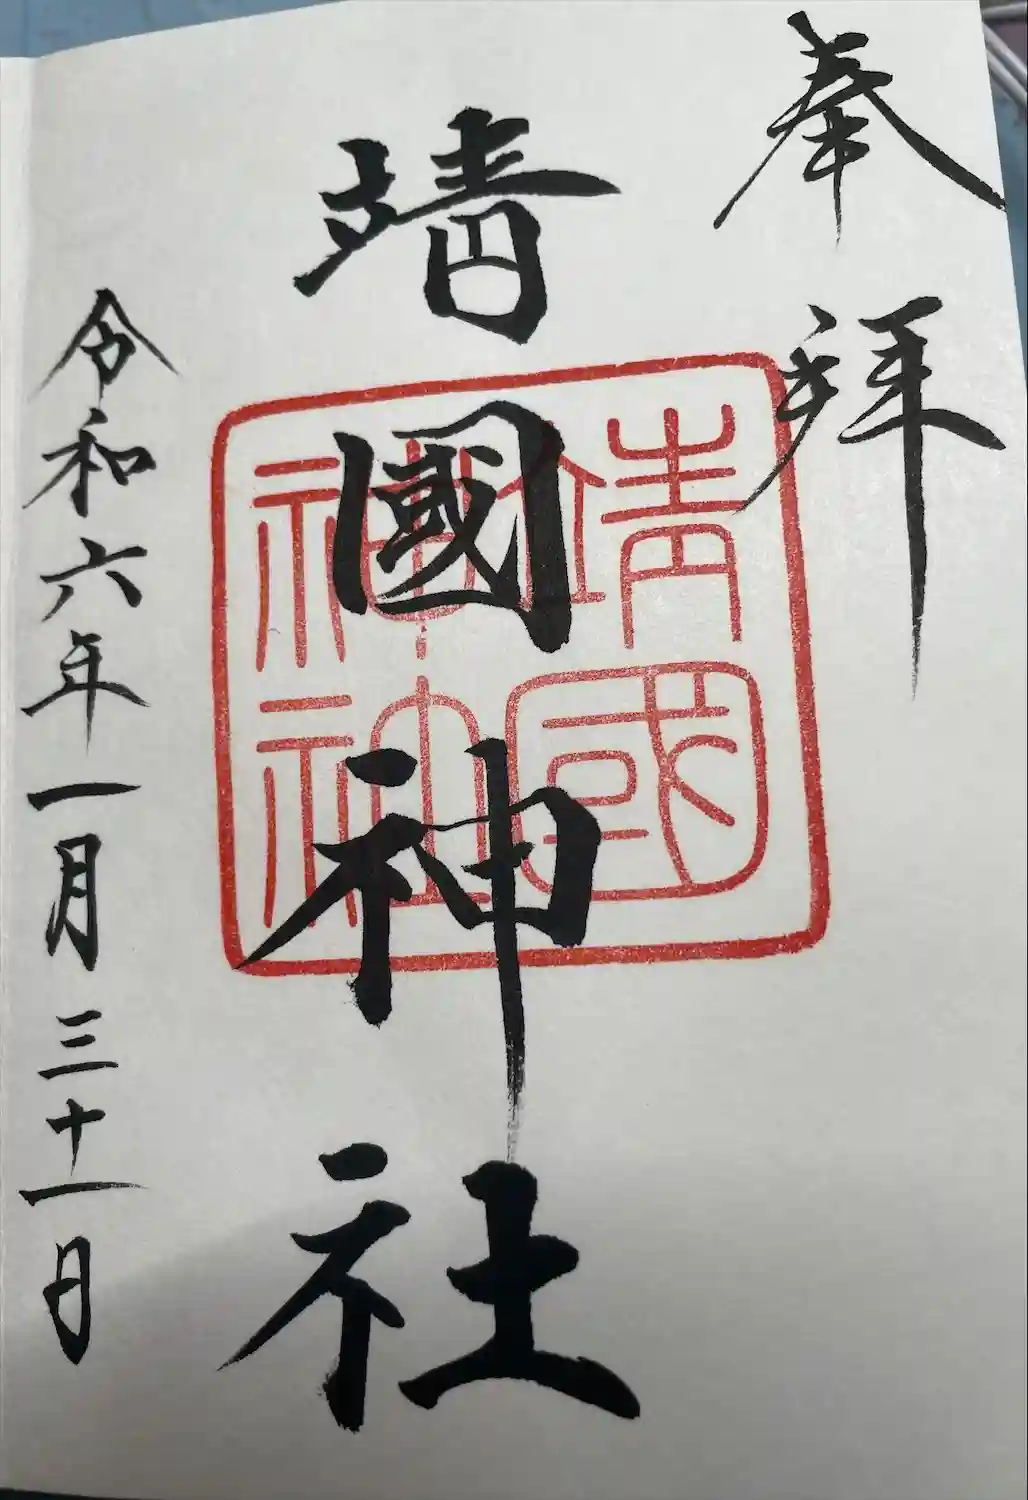 奉拝
靖國神社
靖國
神社
令和六年一月三十一日